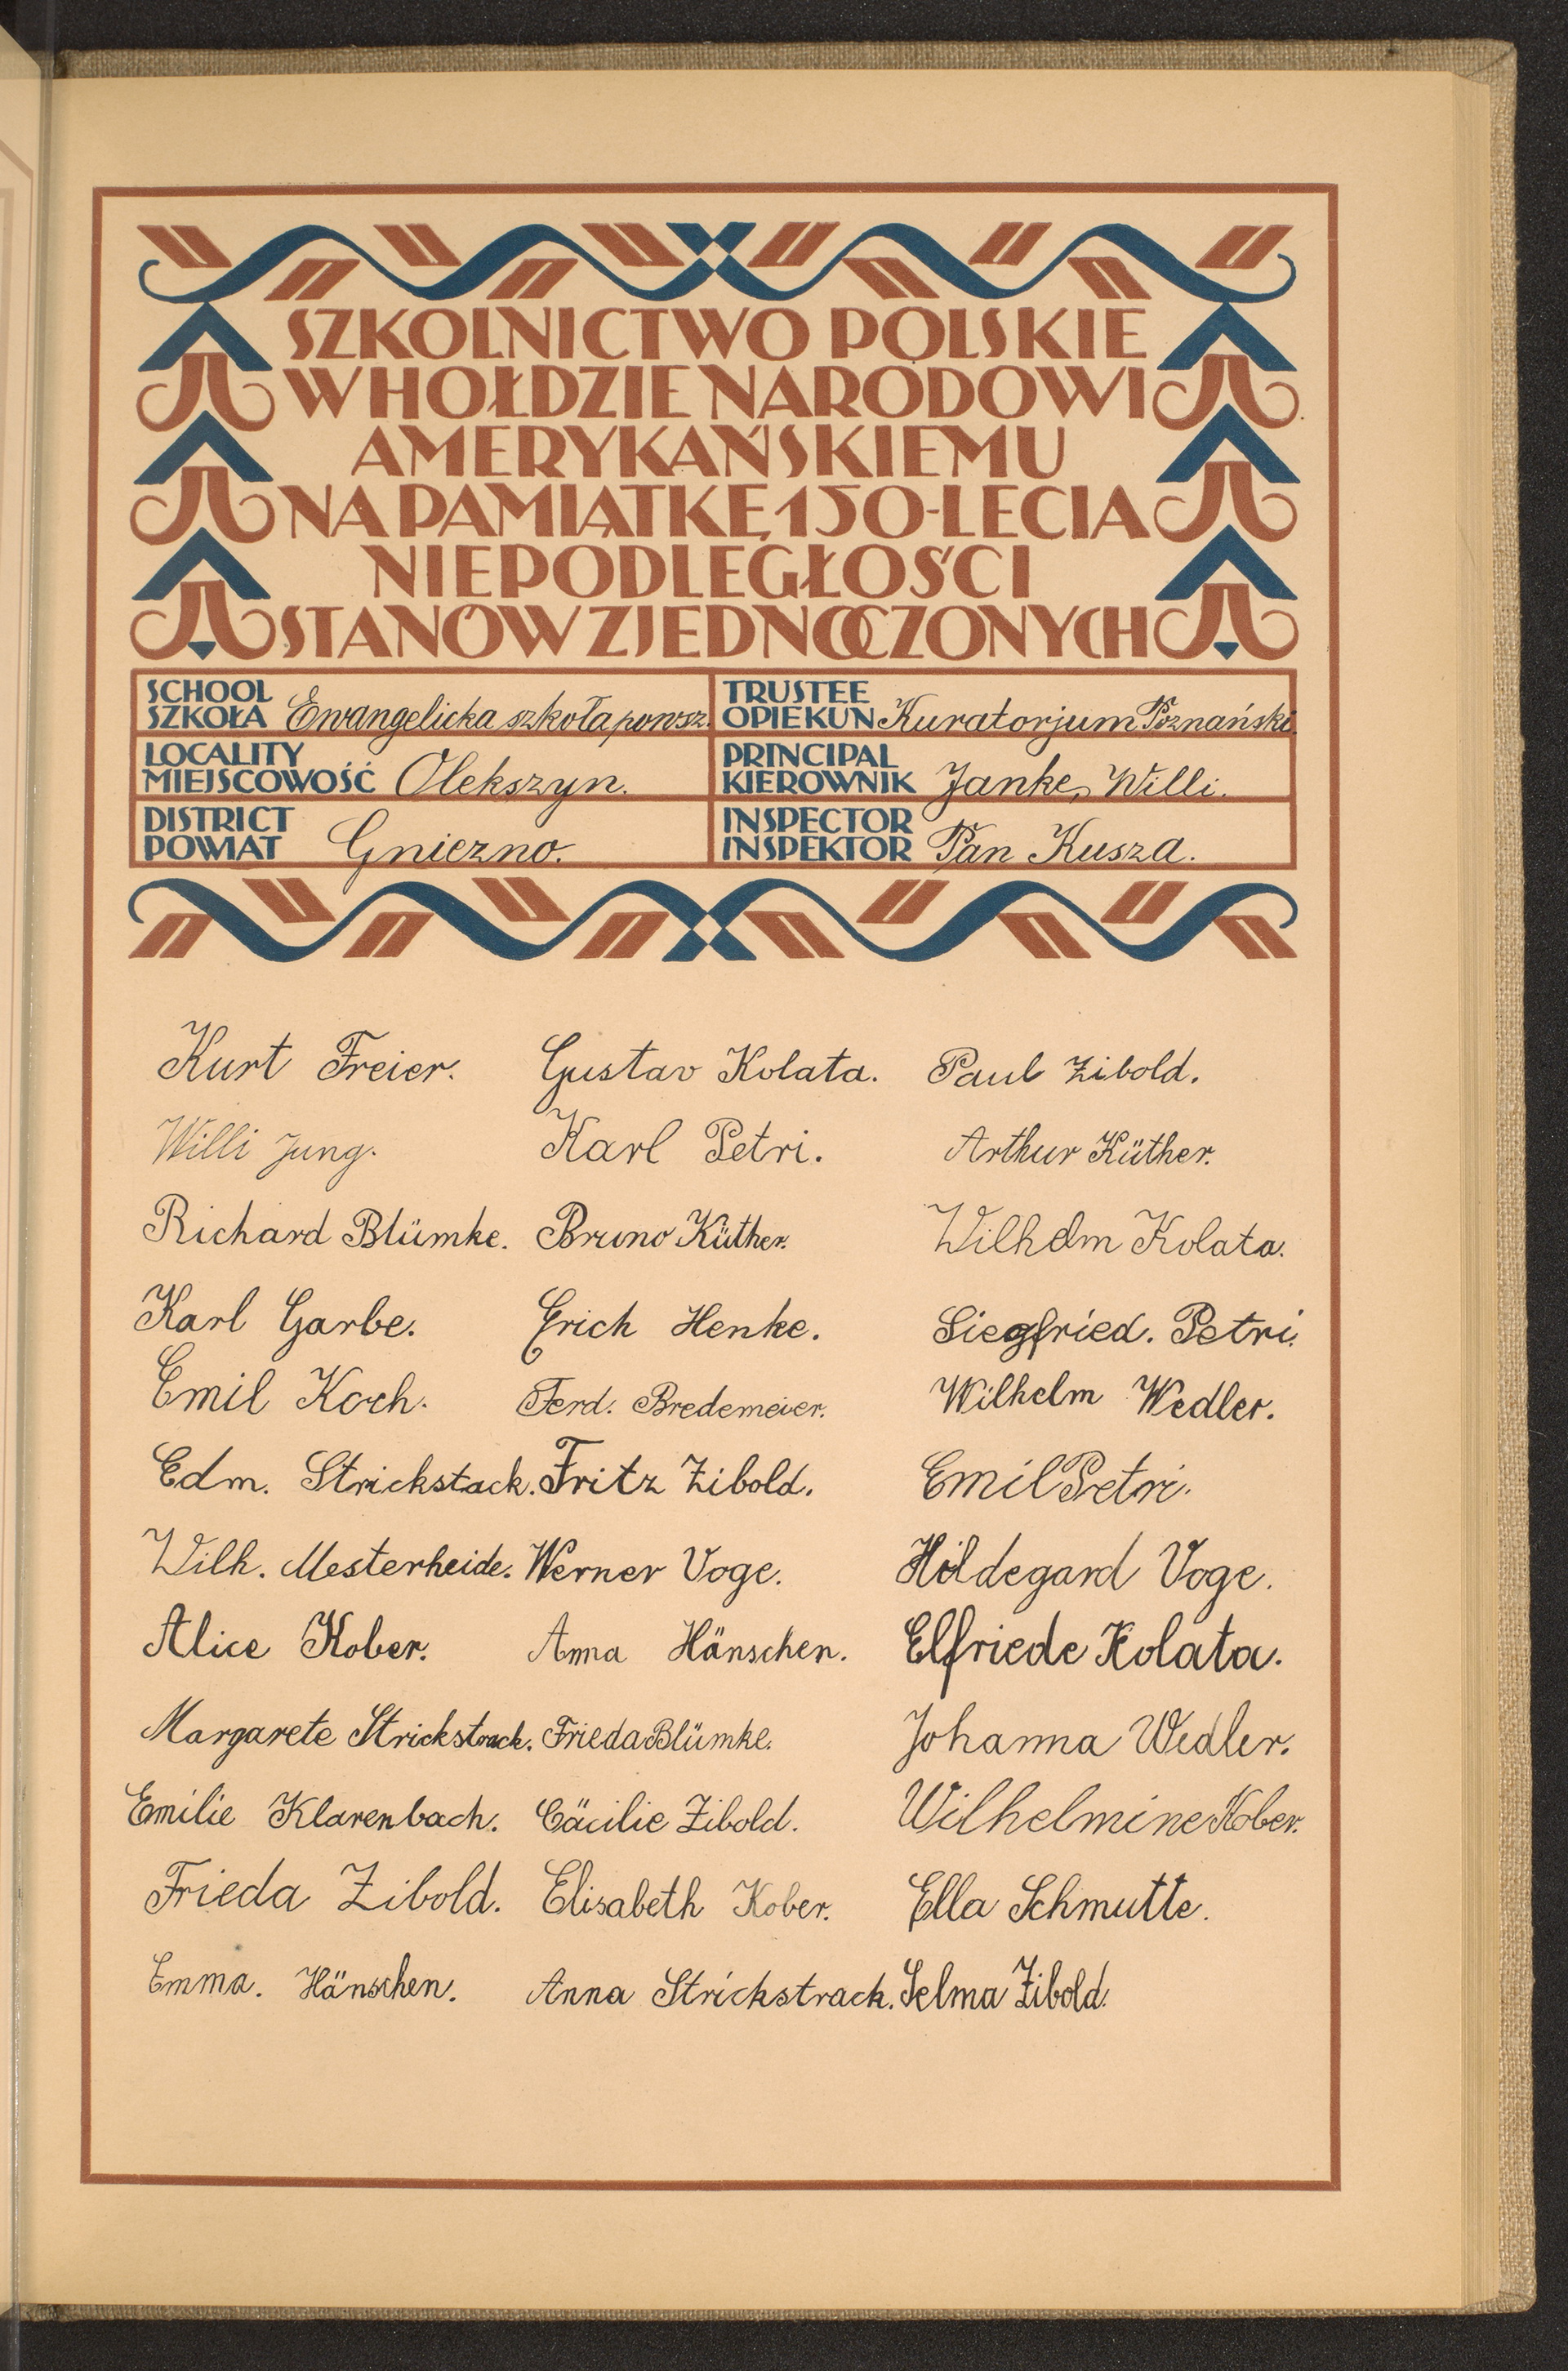 SZKOLNICTWO POLSKIE
W HOŁDZIE NARODOWI
AMERYKAŃSKIEMU
NA PAMIĄTKĘ 150-LECIA
NIEPODLEGŁOŚCI
STANÓW ZJEDNOCZONYCH
SCHOOL
SZKOŁA Ewangelicka szkoła powsz.
TRUSTEE
OPIEKUN Kuratorjum Poznański.
LOCALITY
MIEJSCOWOŚĆ Olekszyn.
PRINCIPAL
KIEROWNIK Janke, Willi.
DISTRICT
POWIAT Gniezno.
INSPECTOR
INSPEKTOR Pan Kusza.
Kurt Freier. Gustav Kolata. Paul Zibold.
Willi Jung. Karl Petri. Arthur Küther.
Richard Blümke. Bruno Küther. Wilhelm Kolata.
Karl Garbe. Erich Henke. Siegfried. Petri.
Emil Koch. Ferd. Bredemeier. Wilhelm Wedler.
Edm. Strickstack. Fritz Zibold. Emil Petri.
Wilh. Mesterheide. Werner Voge. Hildegard Voge.
Alice Kober. Anna Hänschen. Elfriede Kolata.
Margarete Strickstrack. Frieda Blümke. Johanna Wedler.
Emilie Klarenbach. Cäcilie Zibold. Wilhelmine Kober.
Frieda Zibold. Elisabeth Kober. Ella Schmutte.
Emma. Hänschen. Anna Strickstrack. Selma Zibold.